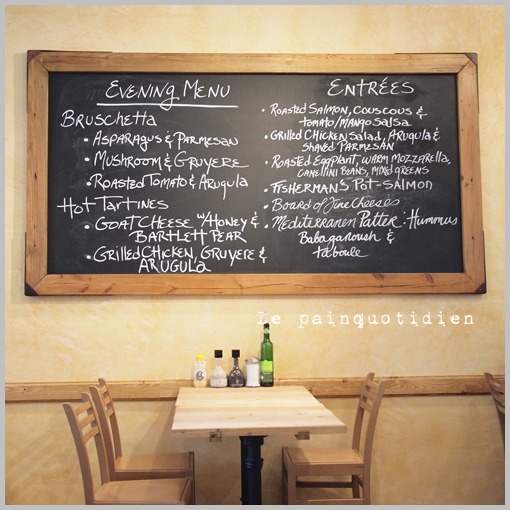 Evening Menu
Bruschetta
• Asparagus & Parmesan
• Mushroom & Gruyere
• Roasted Tomato & Arugula
Hot Tartines
• Goat Cheese w/Honey &
Bartlett Pear
• Grilled Chicken, Gruyere &
Arugula
Entrées
• Roasted Salmon, Couscous &
tomato/mango salsa
• Grilled Chicken Salad, Arugula &
shaved Parmesan
• Roasted Eggplant, warm mozzarella,
canellini beans, mixed greens
• Fisherman's Pot-Salmon
• Board of Fine Cheeses
• Mediterranen Platter: Hummus
Babaganoush &
taboule
Le painquotidien